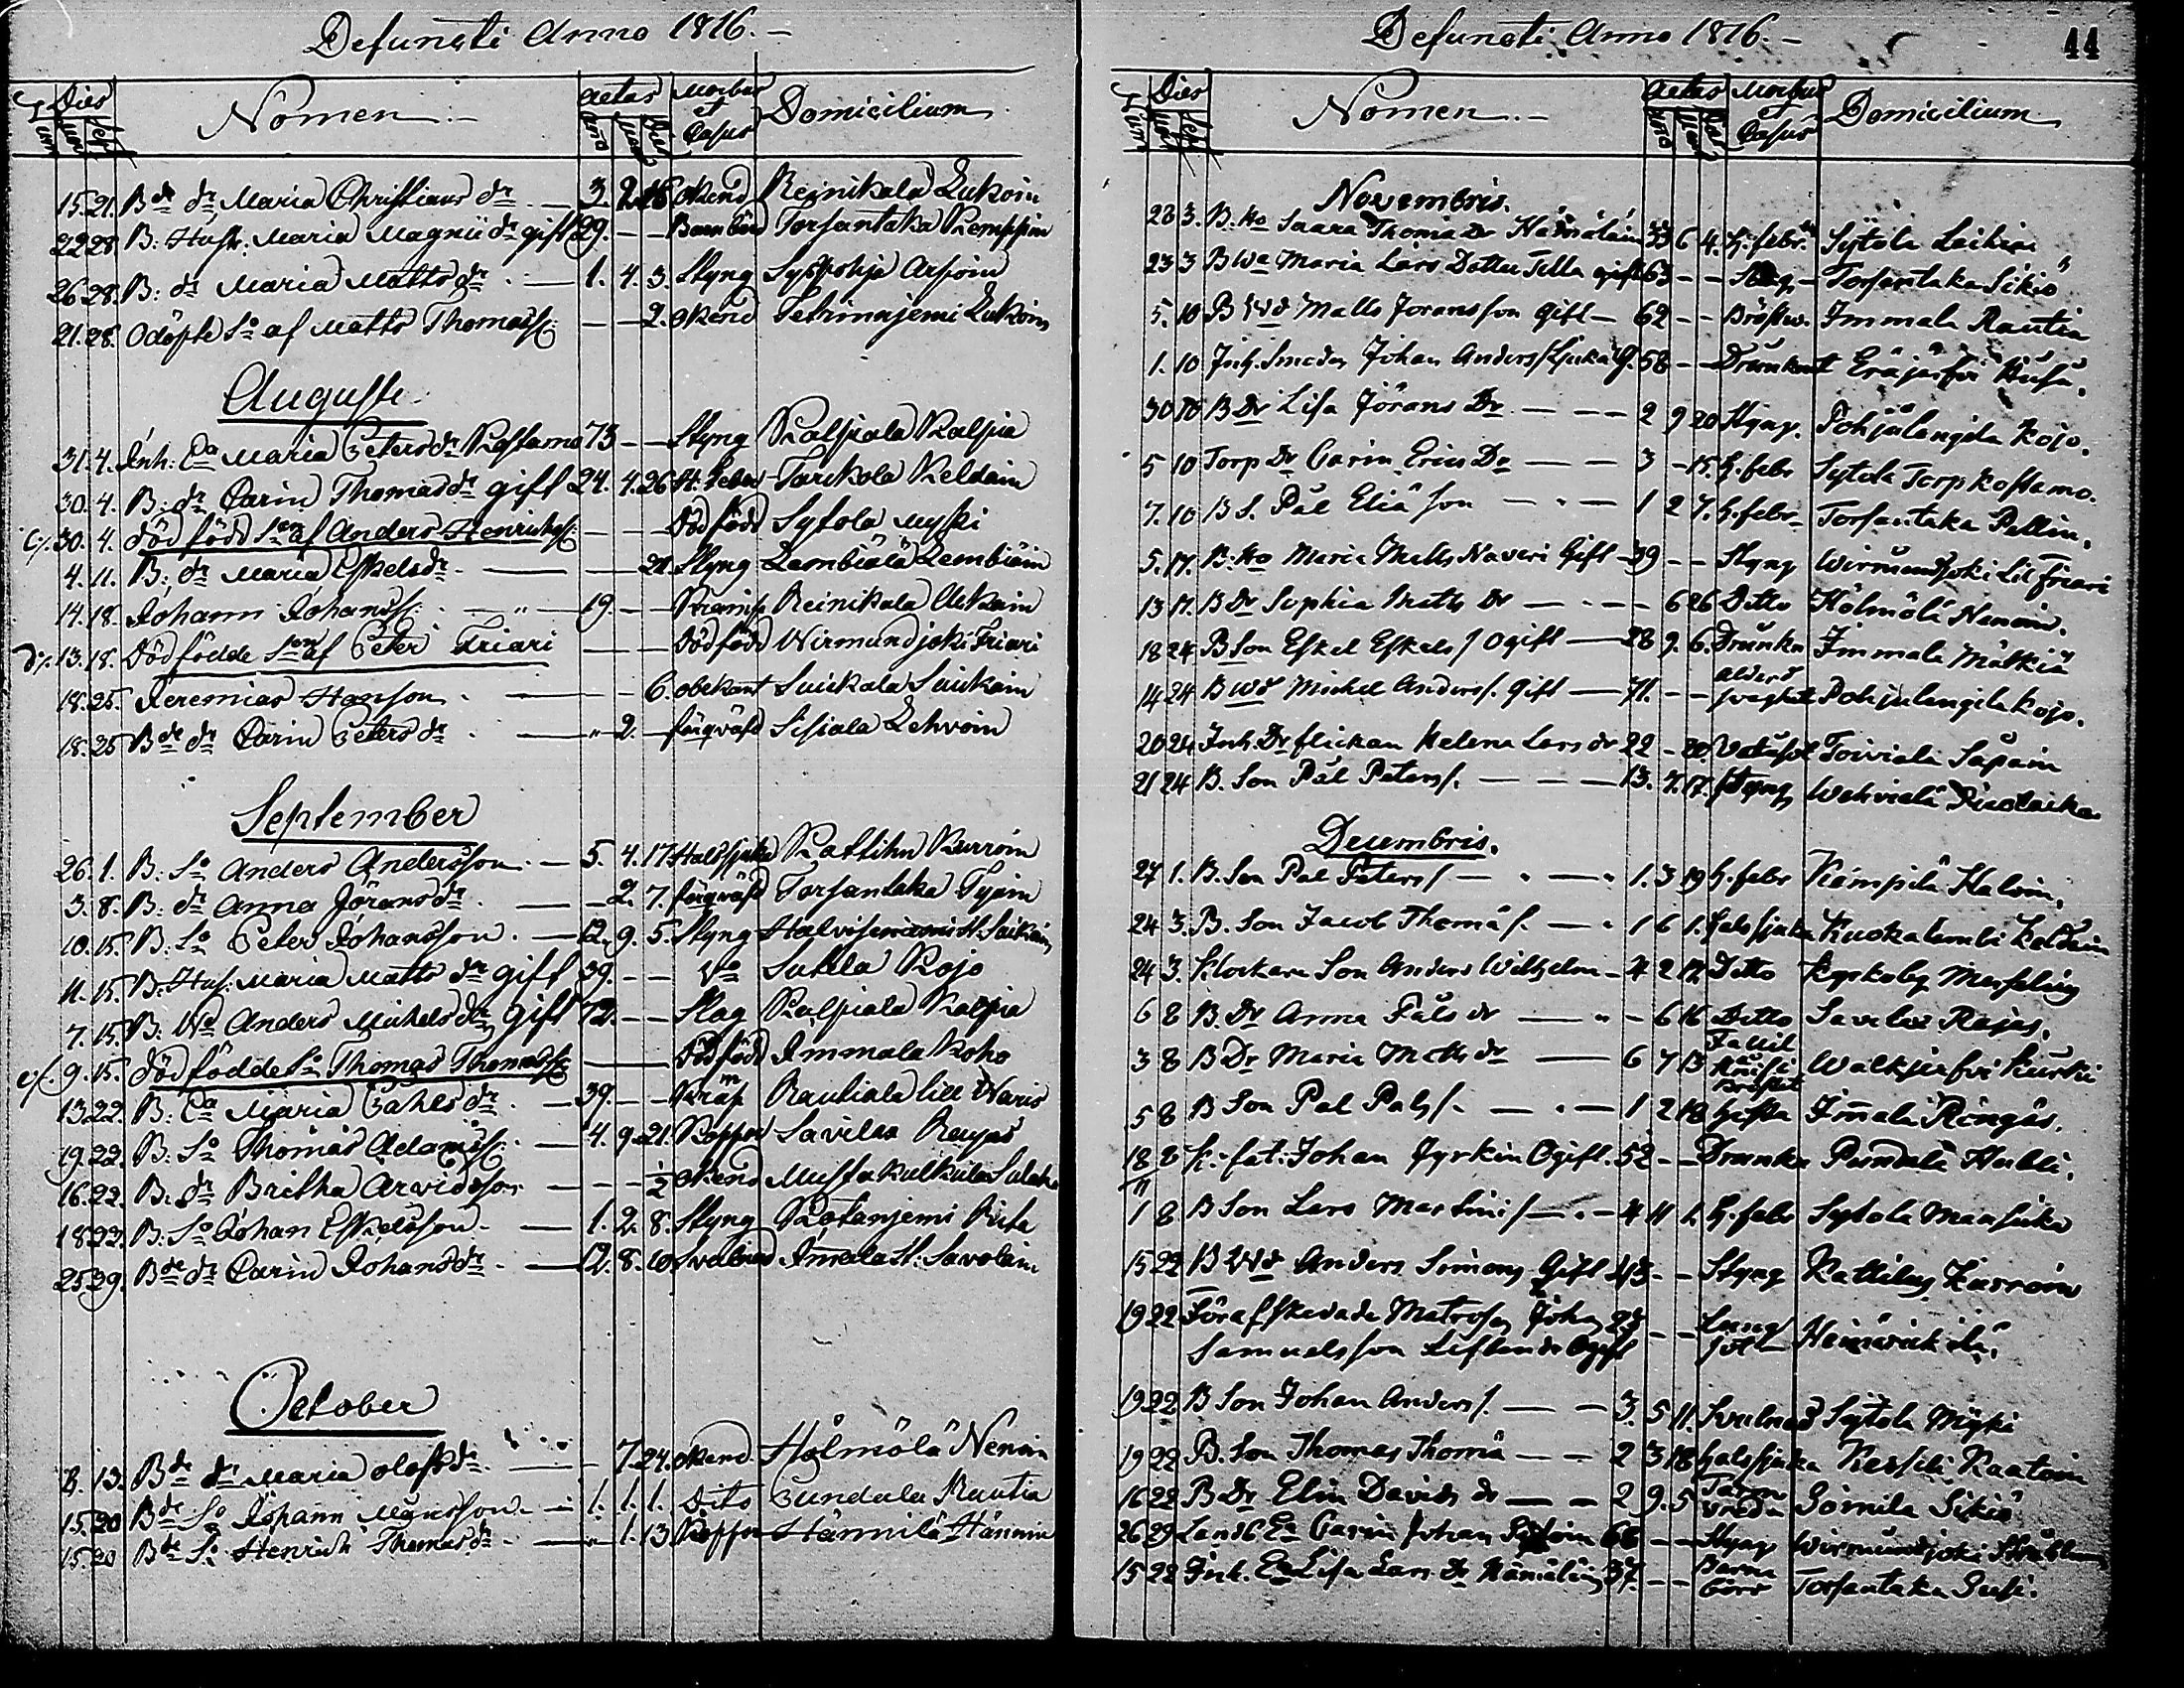 Defuncti Anno 1816.
Dies Nomen Aetas Morbus et Casus Domicilium
15. 21. Bde dr Maria Christians dr — 3. 2. 18 okend Reinikala Lukoin
22 28 B: Hustr. Maria Magnii dr gift 29. — — Barnbörd Torsantaka Kemppin
26 28. B: dr Maria Matts dr — 1. 4. 3. Styng Syspohja Arpoin
21. 28. Odöpte So af Matts Thomass: — — 2. okend Tetrinjemi Lukoin
Auguste
31. 4. Inh: Ea Maria Peters dr Kostamo 73 — — Styng Kalpiala Kalpia
30. 4. B: dr Carin Thomas dr gift 24. 4. 26 H. feber Tarkola Keldain
c/. 30. 4. död född Son af Anders Henrichss: — — Död född Sytola Myski
4. 11. B: dr Maria Eskels dr — — 21. Styng Lembiälä Lembiäin
14. 18. Johann Johanss: — " — 19. — — Kramp Reinikala Uckain
d/. 13. 18. Död födde Son af Peter Friari — — Död född Wirmundjoki Friari
18. 25. Jeremias Hanson — — 6. obekant Suikala Suikain
18. 25 Bde dr Carin Peters dr — " 2. — förqväfd Sisiala Lehvoin
September
26. 1. B: So Anders Andersson — 5. 4. 17. Halssjuka Kattilus Kurroin
3. 8. B: dr Anna Jörans dr — 2. 7. förqväfd Torsantaka Tyäin
10. 15. B: So Peter Johansson — 12. 9. 5. Styng Halvisemiemi H. Suikain
11. 15. B: Hus: Maria Matts dr gift 39. — — Do Sukela Kojo
7. 15. B: Wd Anders Michels gift 72. — — Slag Kalpiala Kalpia
e/. 9. 15. död födde So Thomas Thomass: — Död född Immala Koho
13. 22. B: Ea Maria Pahls dr — 39. — — Kramp Rautiala lill Waris
19. 22. B: So Thomas Adamss: — 4. 9. 21. Koppor Savilax Rajas
16. 22. B: dr Britha Arvidsson — — ½ okend Mustakulkula
18. 22. B: So Johan Eskelsson — 1. 2. 8. Styng Kotanjemi
25. 29. Bde dr Carin Johans dr — 12. 8. 10. Svulnad Imala St. Savolain
October
8. 13. Bde dr Maria Olofs dr — 7. 24. okend. Hölmölä Nenoin
15. 20 Bde So Johann Månsson — 1. 1. 1. Dito Pundula Rautia
15. 20 Bde So Henrich Thomas dr — 1. 13 Koppor Hännilä Hännin
Defuncti Anno 1816. 44
Dies Nomen Aetas Morbus et Casus Domicilium
Novembris.
28 3. B. Ho Saara Thomæ Dr Hämäläin 33 6 4. H. febr. Sytola Leikin
23 3 B Wa Maria Lars Dotter Tella gift 63 — — Slag Torsantaka Sikiö
5. 10 B Wd Matts Joransson Gift — 62 — — Bröstw. Immala Rautia
1. 10 Inh. Smeden Johan Anders G. 58 — — Drunknat Eräjärfvi
30 10 B Dr Lisa Jörans Dr — — 2 9 20 Styng. Pohjalangila Kojo.
5 10 Torp Dr Carin Erics Dr — — 3 — 15. H. febr Sytola Torp Kostamo.
7. 10 B S. Pål Eliæ Son — — 1 2 7. H. febr. Torsantaka Pellin.
5. 17. B: Ho Maria Matts Naveri Gift — 39 — — Styng Wirmundjoki Lil Friari
13 17. B Dr Sophia Matts Dr — — 6 26 Ditto Hölmölä Nenoin.
18 24 B Son Eskel Eskels/ Ogift — 28 9. 6. Drunkn Immala Mätkiä
14 24 B Wd Michel Anders/. Gift — 71. — — alders svaghet Pohjalangila Kojo.
20 24 Inh. Dr flickan Helena Lars dr 22 — 20. Toiviala Säpain
21 24 B. Son Pål Peters/. — — 13. 7. 17. Styng Wehvielä
Decembris.
27 1. B. Son Pal Peters/ — 1. 3 19 H. febr Kämpilä
24 3. B. Son Jacob Thomæ S. — 1 6 1. halssjuka Kuokalambi Keldain
24 3. Klockare Son Anders Wilhelm — 4 2 12 Ditto Kyrkoby
6 8 B. Dr Anna Påls dr — — 6 16 Ditto Savilax Rajas.
3 8 B Dr Maria Matts dr — 6 7 13 Walkjärfvi Kurki
5 8 B Son Pal Pals/. — — 1 2 18 hosta Imala Ringäs.
18/11 8 K: fat: Johan Jyrkin Ogift. 52 — — Drunkn Pundula
1 8 B Son Lars Martini/ — — 4 11 1. H. febr Sytola Mansika
15 22 B Wd Anders Simons Gift 43 — — Styng Kattilus Kurroin
19 22 Förafskedade Matrosen Johan 23 — — Lung
Samuelsson Liflander Ogift sot
19 22 B Son Johan Anders/. — — 3. 5 11. Svulnad Sytola Myski
19 22 B. Son Thomas Thomæ — — 2 3 18 halssjuka Kaatoin
16 22 B Dr Elin Davids dr — — 2 9. 5 Tarm vreda Sikiö
26 29 Landb. Ea Carin Johan 66 — — Styng Wirmundjoki
15 22 Inh. Ea Lisa Lars Dr Hämäläin 37. — — Barns börd Torsantaka Susi.